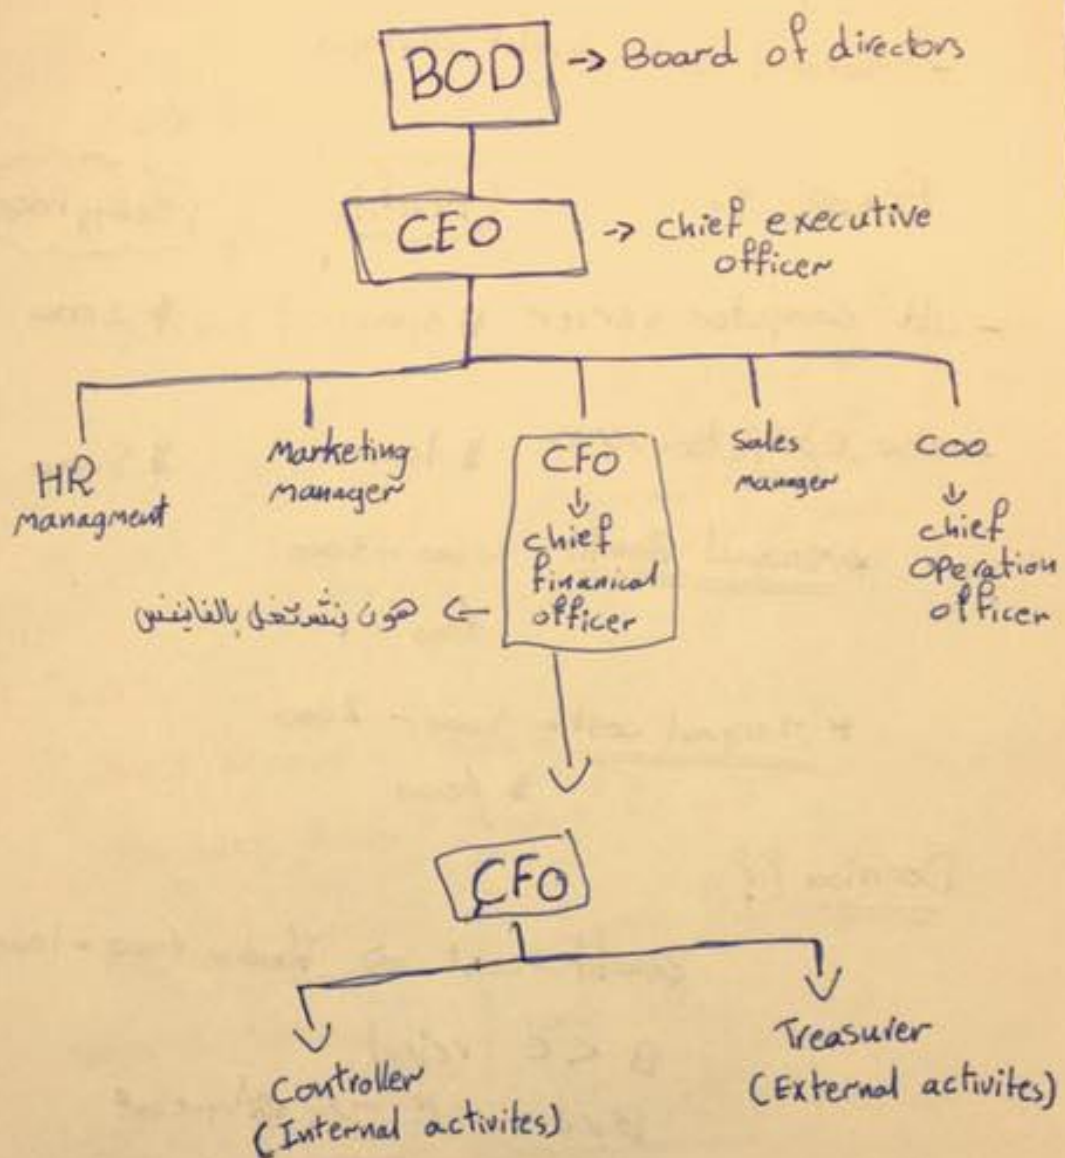 BOD → Board of directors
CEO → chief executive
officer
HR
managment
Marketing
manager
CFO
↓
chief
finanical
officer
هون نشتغل بالفاينس ←
sales
manager
COO
↓
chief
operation
officer
CFO
Controller
(Internal activites)
Treasurer
(External activites)